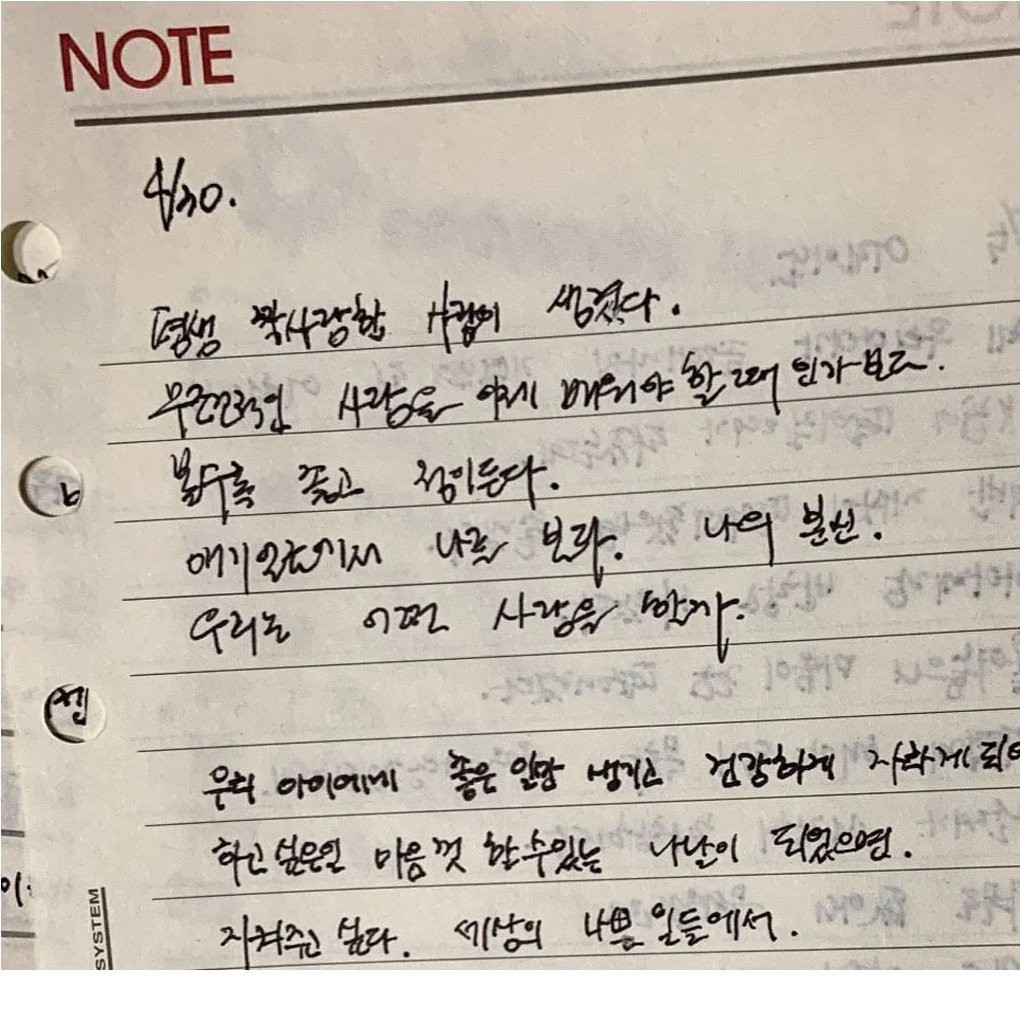 NOTE
4/30.
평생 짝사랑할 사람이 생겼다.
무조건적인 사랑을 이제 배워야 할 때 인가보다.
볼수록 좋고 정이든다.
애기얼굴에서 나를 본다. 나의 분신.
우리는 어떤 사랑을 할까.
우리 아이에게 좋은 일만 생기고 건강하게 자라게 되
하고 싶은일 마음껏 할 수 있는 나날이 되었으면.
지켜주고 싶다. 세상의 나쁜 일들에서.
SYSTEM